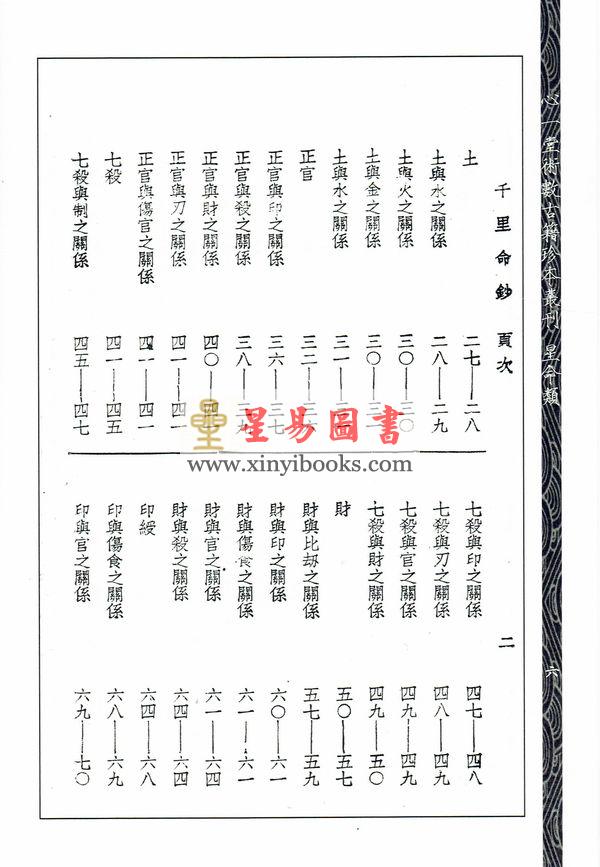 心一堂術數古籍珍本叢刊 星命類 六
千里命鈔 頁次 二
土 二七——二八
土與水之關係 二八——二九
土與火之關係 三〇——三〇
土與金之關係 三〇——三一
土與水之關係 三一——
正官 三二——三六
正官與印之關係 三六——三七
正官與殺之關係 三八——三九
正官與財之關係 四〇——四一
正官與刃之關係 四一——四一
正官與傷官之關係 四一——四一
七殺 四一——四五
七殺與制之關係 四五——四七
七殺與印之關係 四七——四八
七殺與刃之關係 四八——四九
七殺與官之關係 四九——四九
七殺與財之關係 四九——五〇
財 五〇——五七
財與比劫之關係 五七——五九
財與印之關係 六〇——六一
財與傷食之關係 六一——六一
財與官之關係 六一——六四
財與殺之關係 六四——六四
印綬 六四——六八
印與傷食之關係 六八——六九
印與官之關係 六九——七〇
星易圖書
www.xinyibooks.com